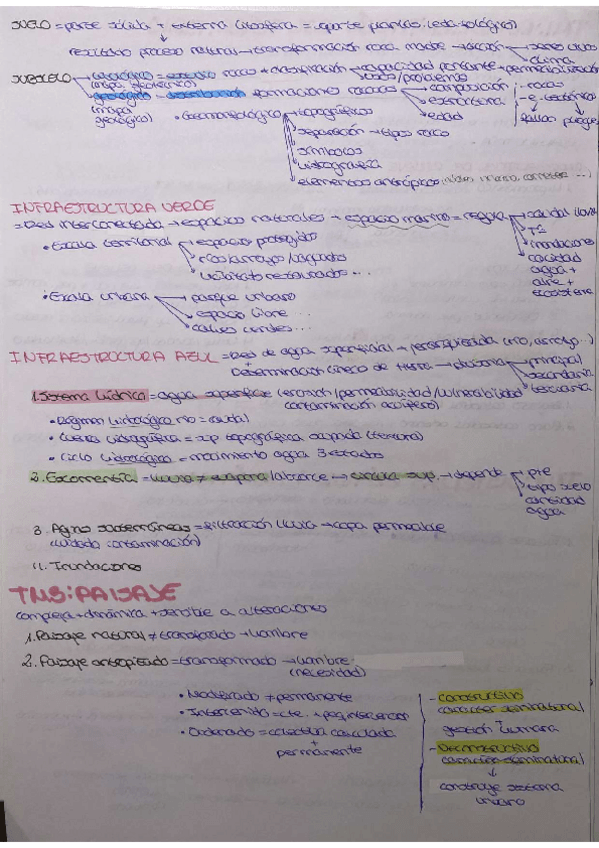 SUELO = parte sólida + externa litosfera = soporte plantas (edafológico)
resultado proceso natural → transformación roca madre → acción → seres vivos
clima
SUBSUELO → litológico = estudio rocas + clasificación → capacidad portante + permeabilización
(mapa geotécnico) usos/problemas
→ geológico = distribución formaciones rocosas → composición - rocas
(mapa geológico) → estructura - e. tectónica
→ edad fallas pliegues
• Geomorfológico → topográficos
separación → tipos roca
símbolos
hidrografía
elementos antrópicos
INFRAESTRUCTURA VERDE
= Red interconectada → espacios naturales → espacio marino = regula → caudal lluvia
Tª
inundaciones
calidad agua + aire + ecosistema
• Escala territorial → espacios protegidos
ríos/arroyos/
hábitats restaurados...
• Escala urbana → parque urbano
espacio libre...
calles verdes...
INFRAESTRUCTURA AZUL = Red de agua superficial → personalizada (río, arroyo...)
+
Determinación cuenca de tierra → pluvial → principal
secundaria
terciaria
1. Sistema hídrico = agua superficie (escorrentía/permeabilidad/vulnerabilidad
contaminación acuífero)
• Régimen hidrológico río = caudal
• Cuenca hidrográfica = sup topográfica ocupada (tierra)
• Ciclo hidrológico = movimiento agua 3 estados
2. Escorrentía = lluvia ≠ evapora/alcance → circula sup. → depende → pte
tipo suelo
cantidad agua
3. Aguas subterráneas = filtración lluvia → capa permeable
(cuidado: contaminación)
4. Inundaciones
TM5: PAISAJE
compleja + dinámica + sensible a alteraciones
1. Paisaje natural ≠ transformado → hombre
2. Paisaje antropizado = transformado → hombre
(necesidad)
• Moderado ≠ permanente
• Intervenido = cte. +
• Ordenado = colectiva calculada
+
permanente
- Constructivo
carácter seminatural
gestión humana
- Deconstructivo
carácter seminatural
↓
construye sistema
urbano